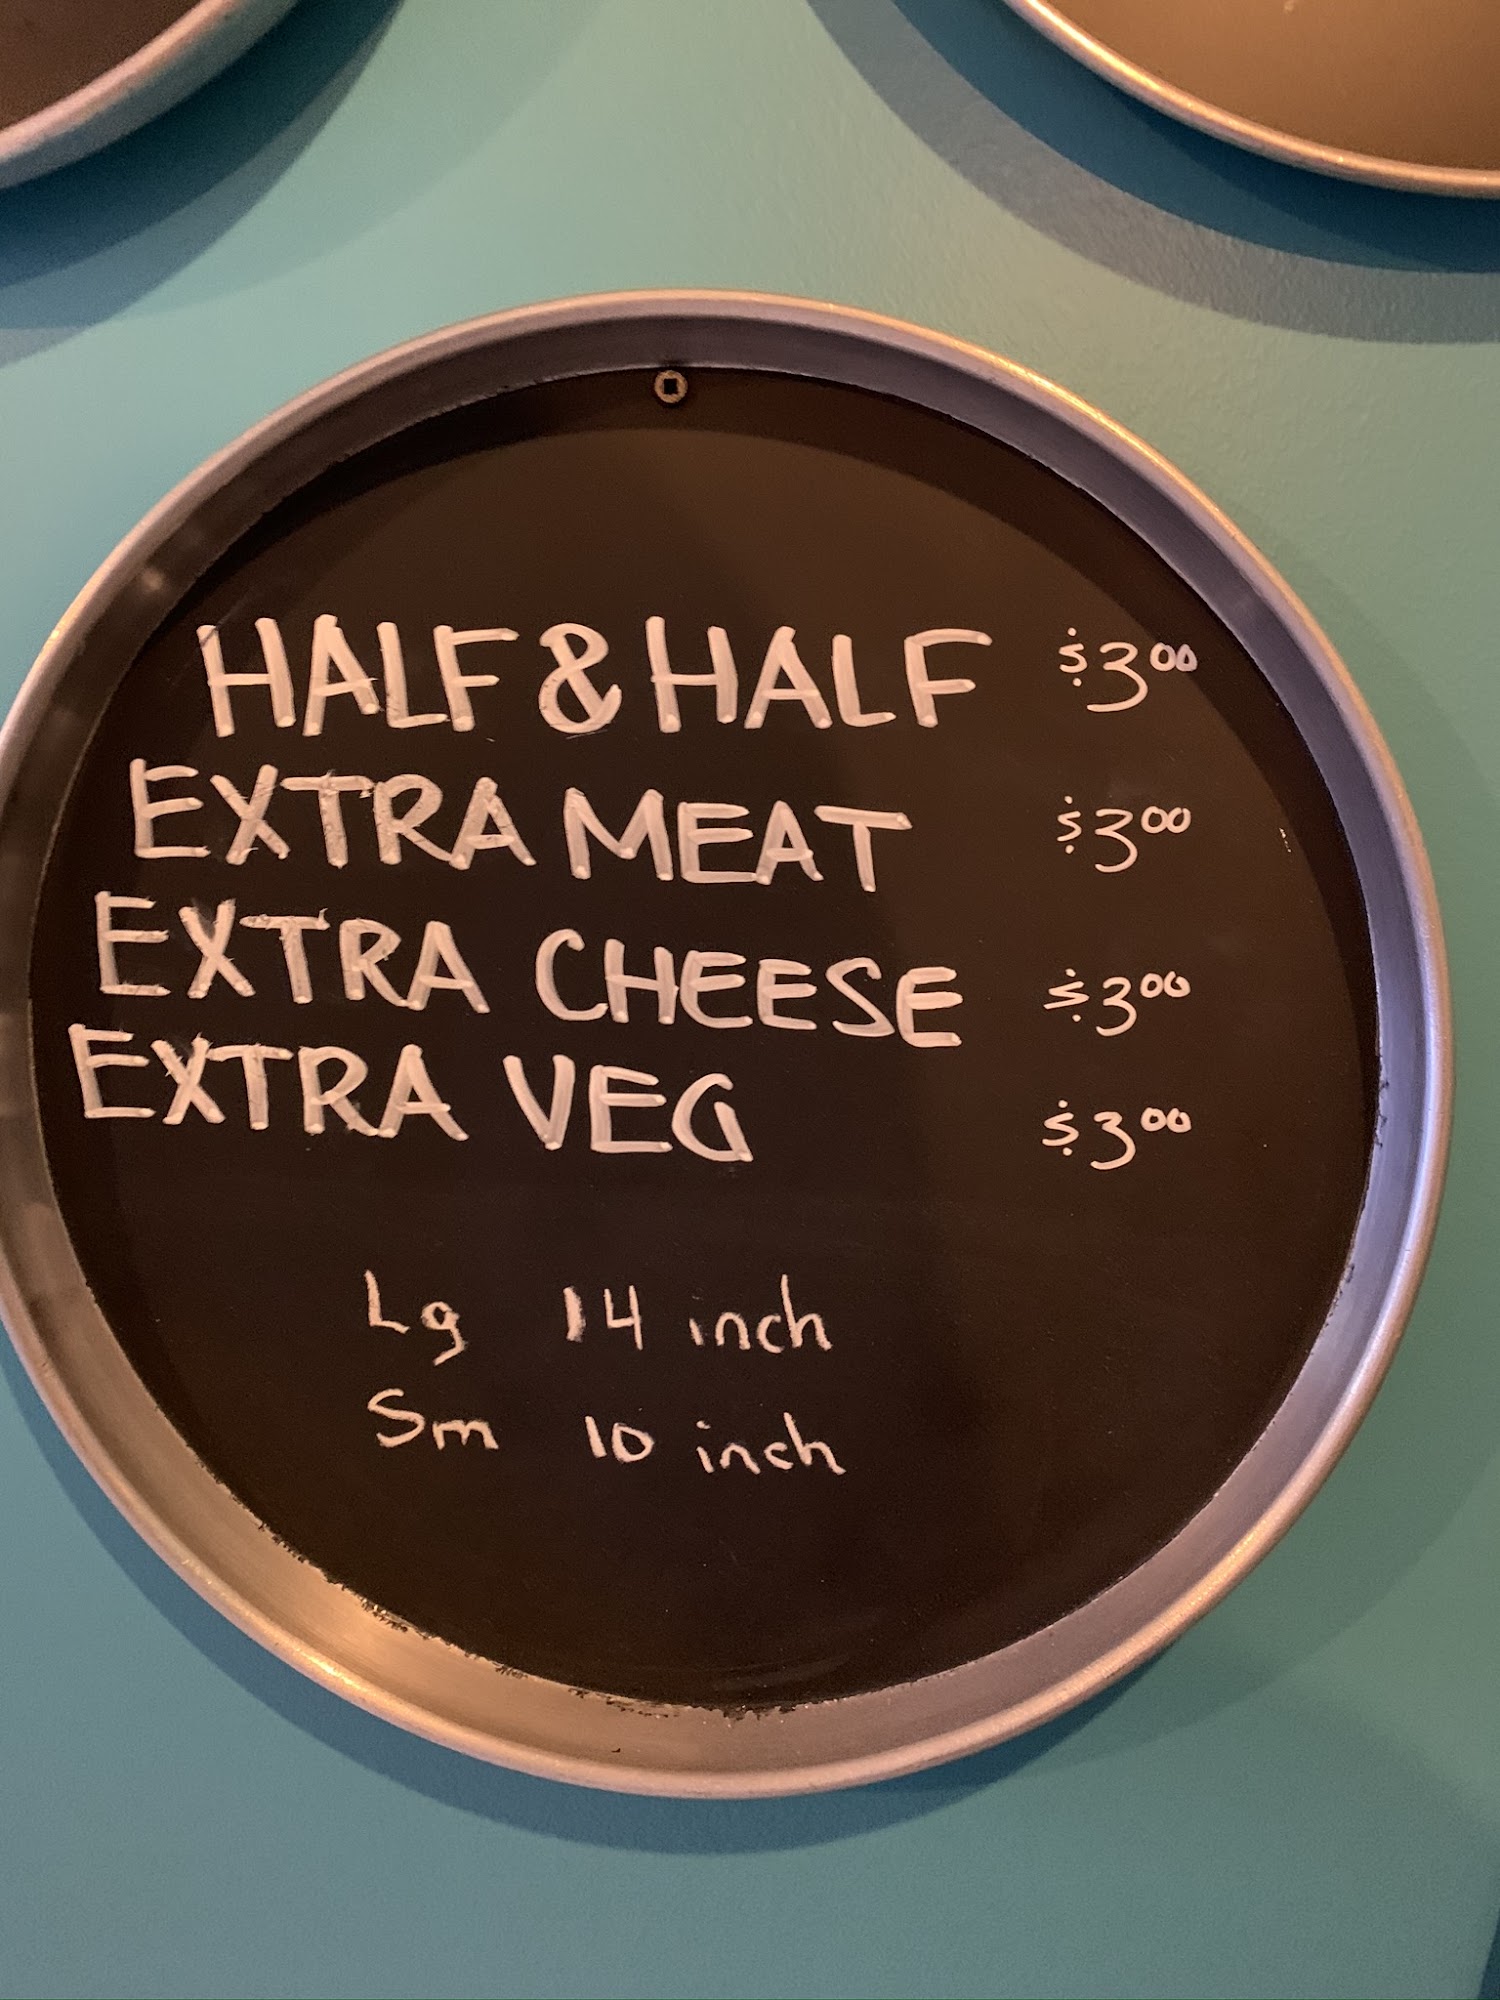 HALF & HALF $3.00
EXTRA MEAT $3.00
EXTRA CHEESE $3.00
EXTRA VEG $3.00
Lg 14 inch
Sm 10 inch